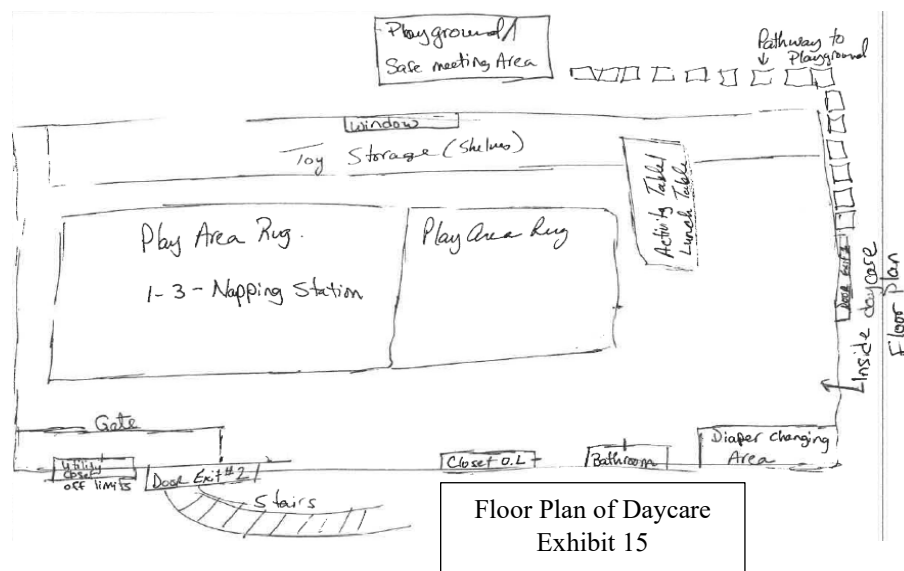 Playground/
Safe meeting Area
Pathway to
Playground
Window
Toy Storage (Shelves)
Play Area Rug.
1-3 - Napping Station
Play Area Rug
Activity Table/
Lunch Table
Door Exit 1
Inside daycase
Floor Plan
Gate
Utility
Closet
off limits
Door Exit #2
Stairs
Closet O.L
Bathroom
Diaper changing
Area
Floor Plan of Daycare
Exhibit 15